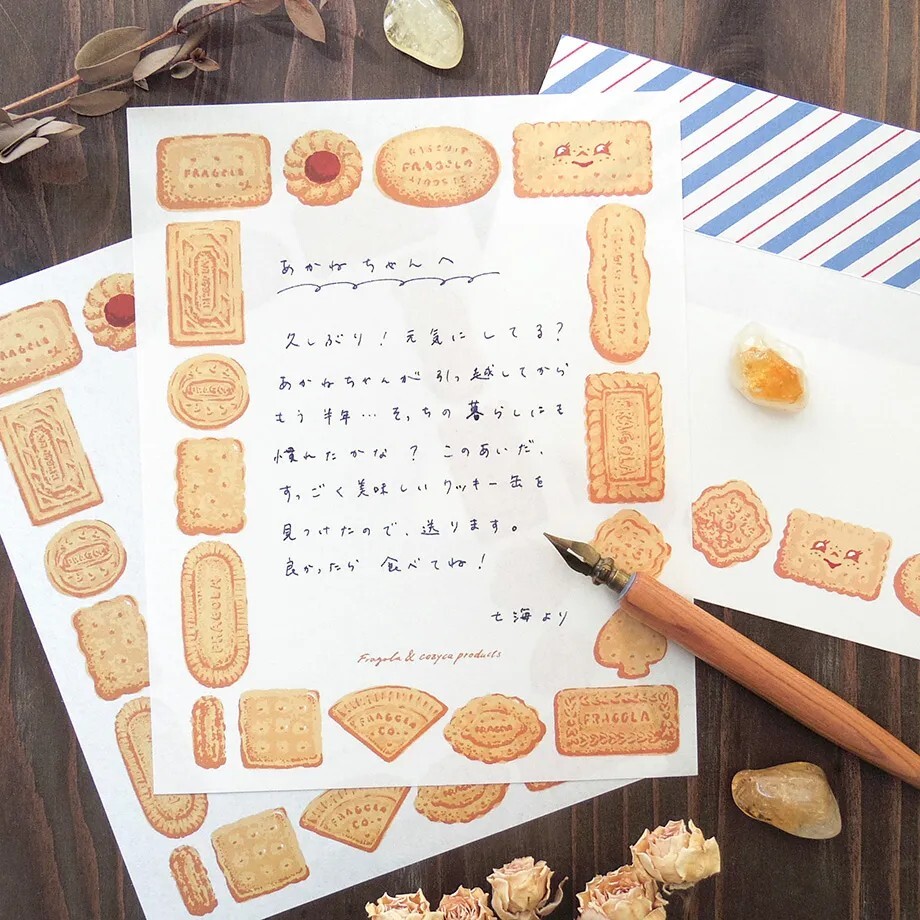 FRAGOLA
BISCUIT
FRAGOLA
BISCUIT
あかねちゃんへ
久しぶり！元気にしてる？
あかねちゃんが引っ越してから
もう半年…そっちの暮らしにも
慣れたかな？このあいだ、
すっごく美味しいクッキー缶を
見つけたので、送ります。
良かったら食べてね！
七海より
Fragola & cozyca products
FRAGOLA
FRAGOLA
FRAGOLA
CO.
FRAGOLA
FRAGOLA
FRAGOLA
FRAGOLA
CO.